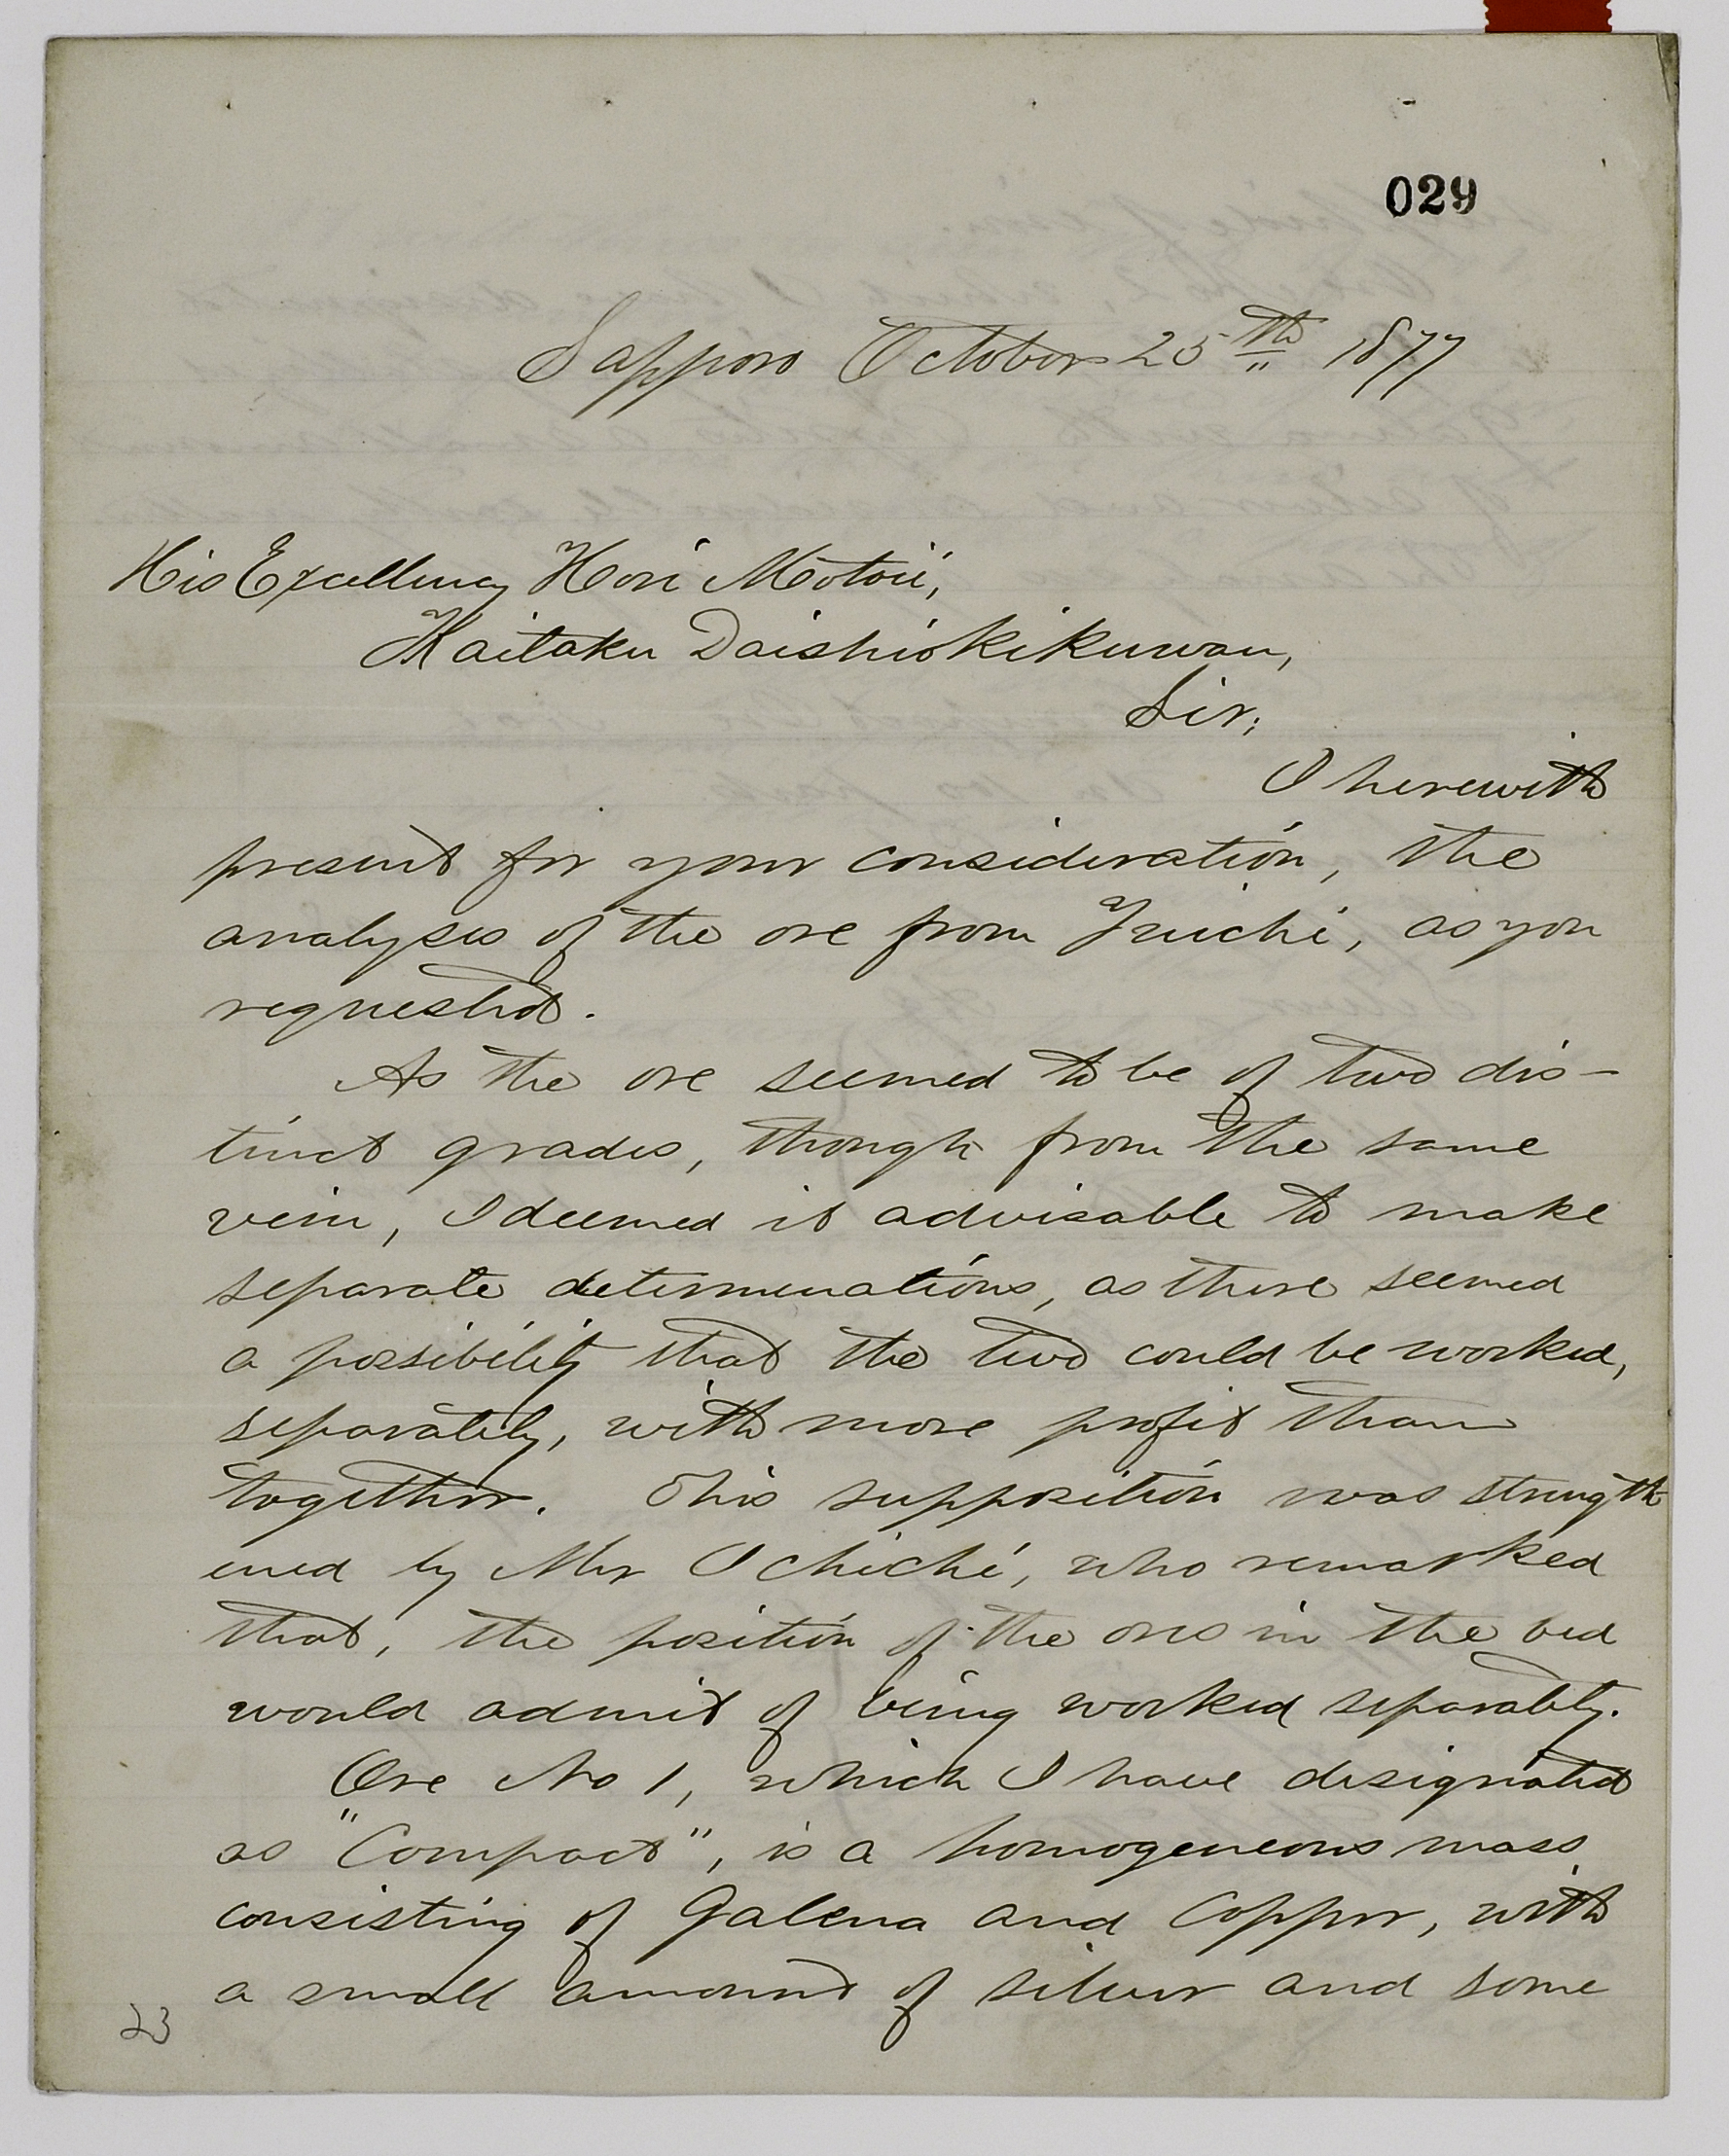 029
Sapporo October 25th 1877
His Excellency Hori Motoii,
Kaitaku Daishiokikuwan,
Sir;
I herewith
present for your consideration, the
analyses of the ore from Yuichi, as you
requested.
As the ore seemed to be of two dis-
tinct grades, though from the same
vein, I deemed it advisable to make
separate determinations, as there seemed
a possibility that the two could be worked,
separately, with more profit than
together. This supposition was strength
ened by Mr Ochichi, who remarked
that, the position of the ores in the bed
would admit of being worked separately.
Ore No 1, which I have designated
as "Compact", is a homogeneous mass
consisting of Galena and Copper, with
a small amount of silver and some
23